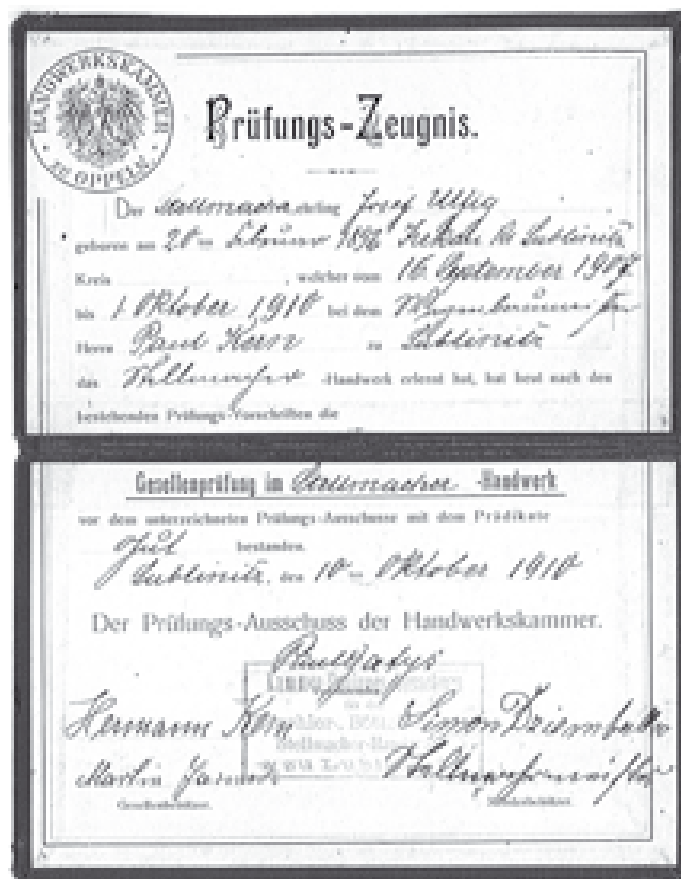 HANDWERKSKAMMER
ZU OPPELN
Prüfungs-Zeugnis.
Der Stellmacherlehrling Josef
geboren am 20ten Februar 189 Lublinitz
Kreis , welcher vom 16 September 1907
bis 1 Oktober 1910 bei dem
Herrn Paul Kern zu Lublinitz
das Stellmacher -Handwerk erlernt hat, hat heut nach den
bestehenden Prüfungs-Vorschriften die
Gesellenprüfung im Stellmacher -Handwerk
vor dem unterzeichneten Prüfungs-Ausschusse mit dem Prädikate
Gut bestanden.
Lublinitz, den 10ten Oktober 1910
Der Prüfungs-Ausschuss der Handwerkskammer.
Paul
Hermann Kern Simon
Martin Stellmachermeister
Gesellenbeisitzer. Meisterbeisitzer.